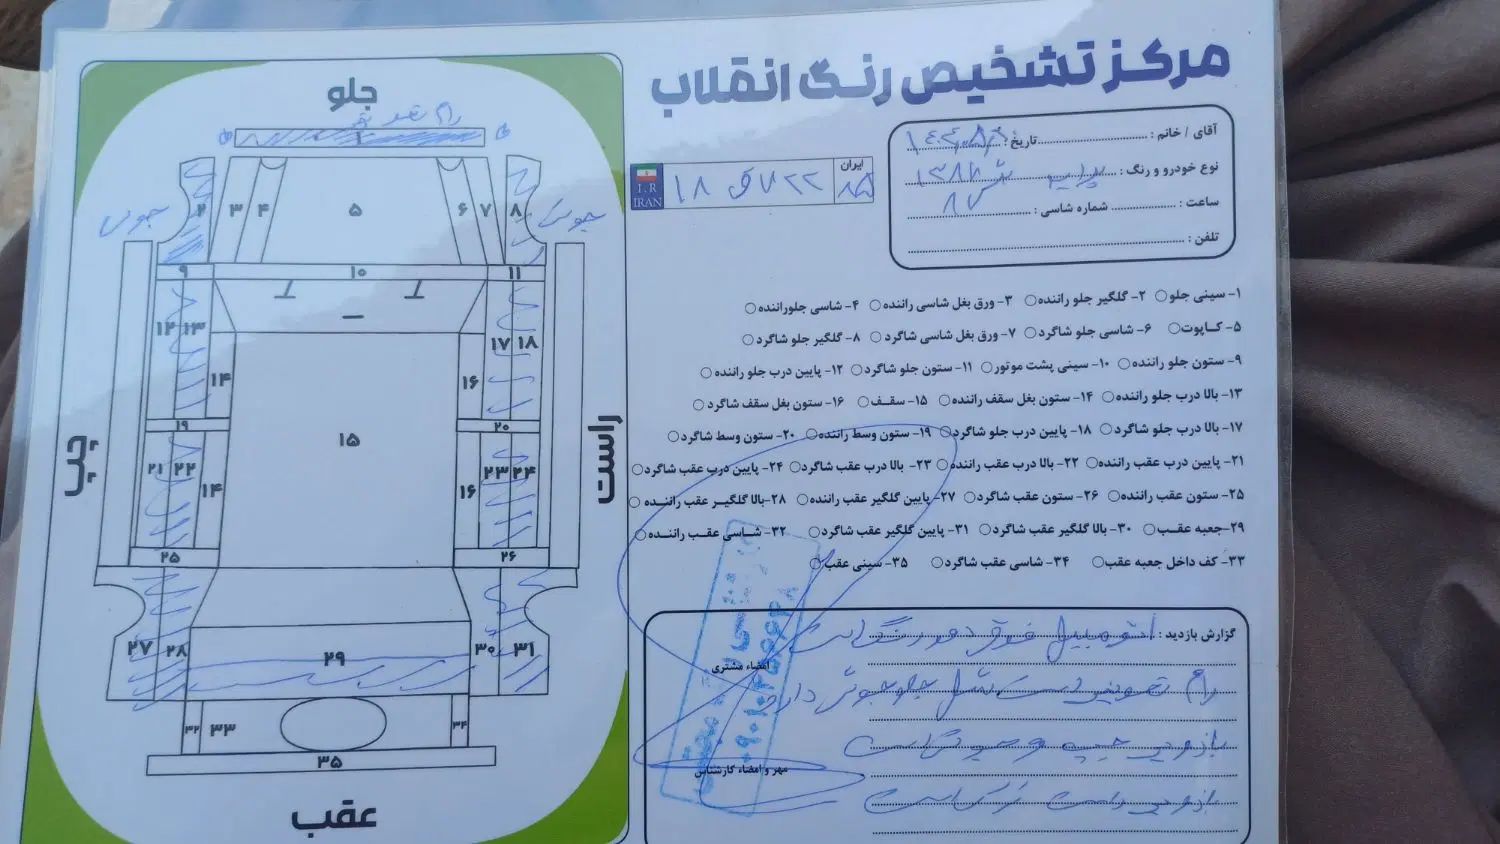 مرکز تشخیص رنگ انقلاب
آقای / خانم : تاریخ :
نوع خودرو و رنگ : پراید
ساعت : شماره شاسی :
تلفن :
ایران
۱۸ ق ۷۲۲
I.R
IRAN
۱- سینی جلو ۲- گلگیر جلو راننده ۳- ورق بغل شاسی راننده ۴- شاسی جلوراننده
۵- کاپوت ۶- شاسی جلو شاگرد ۷- ورق بغل شاسی شاگرد ۸- گلگیر جلو شاگرد
۹- ستون جلو راننده ۱۰- سینی پشت موتور ۱۱- ستون جلو شاگرد ۱۲- پایین درب جلو راننده
۱۳- بالا درب جلو راننده ۱۴- ستون بغل سقف راننده ۱۵- سقف ۱۶- ستون بغل سقف شاگرد
۱۷- بالا درب جلو شاگرد ۱۸- پایین درب جلو شاگرد ۱۹- ستون وسط راننده ۲۰- ستون وسط شاگرد
۲۱- پایین درب عقب راننده ۲۲- بالا درب عقب راننده ۲۳- بالا درب عقب شاگرد ۲۴- پایین درب عقب شاگرد
۲۵- ستون عقب راننده ۲۶- ستون عقب شاگرد ۲۷- پایین گلگیر عقب راننده ۲۸-بالا گلگیر عقب راننده
۲۹-جعبه عقب ۳۰- بالا گلگیر عقب شاگرد ۳۱- پایین گلگیر عقب شاگرد ۳۲- شاسی عقب راننده
۳۳- کف داخل جعبه عقب ۳۴- شاسی عقب شاگرد ۳۵- سینی عقب
گزارش بازدید : اتومبیل فوق دور رنگ است
امضاء مشتری
رام تعویض دست شاسی جلو جوش دارد
مهر و امضاء کارشناس
جلو
رام تعویض
۱
۲ ۳ ۴ ۵ ۶ ۷ ۸
جوش
جوش
۹ ۱۰ ۱۱
۱۲ ۱۳ ۱۷ ۱۸
۱۴ ۱۶
۱۹ ۲۰
چپ
۱۵
راست
۲۱ ۲۲ ۱۴ ۱۶ ۲۳ ۲۴
۲۵ ۲۶
۲۷ ۲۸ ۲۹ ۳۰ ۳۱
۳۲ ۳۳ ۳۴
۳۵
عقب